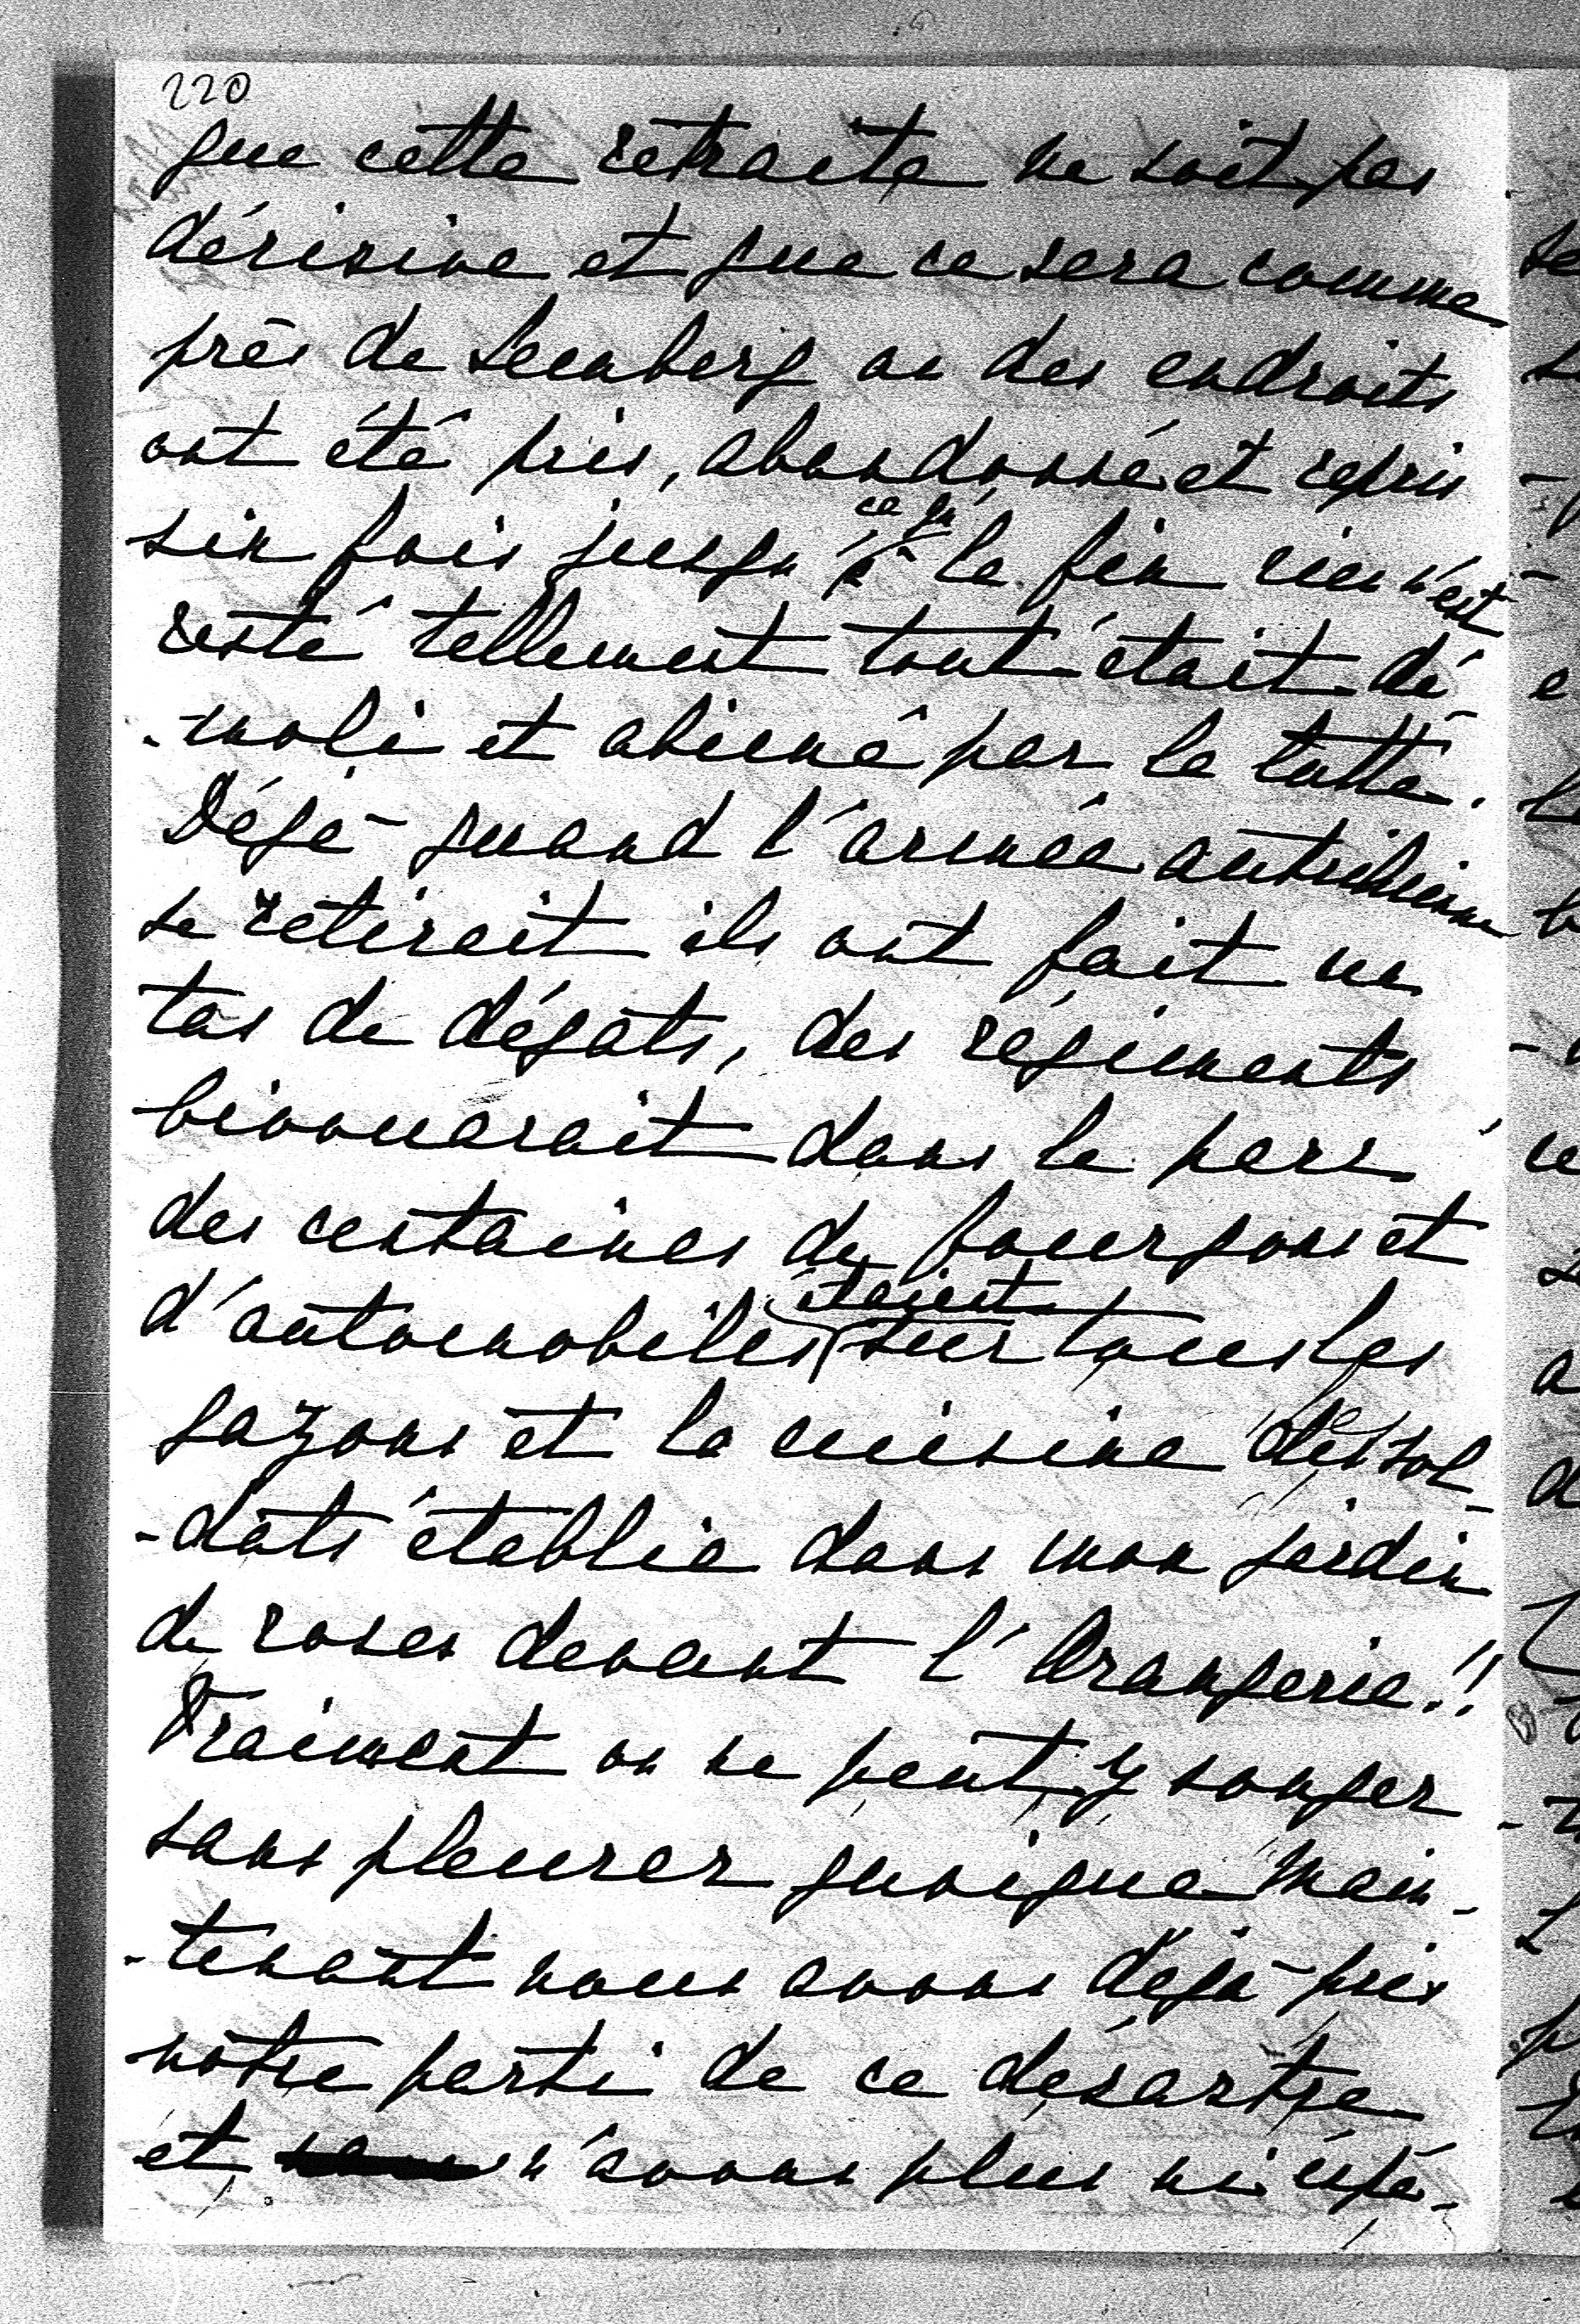 220
que cette retraite ne soit pas
dérisive et que ce sera comme
près de Lemberg ou des endroits
ont été pris, abandonné et repris
six fois jusqu'à ce qu'à la fin rien n'est
resté tellement tout était dé-
-moli et abimé par la lutte.
Déjà quand l'armée autrichienne
se retirait ils ont fait un
tas de dégats, des régiments
bivouacait dans le parc
des centaines de fourgons et
d'automobiles étaient sur tous les
gazons et la cuisine des sol-
-dats établie dans mon jardin
de roses devant l'Orangerie!!
Vraiment on ne peut y songer
sans pleurer quoique main-
-tenant nous avons déjà pris
notre parti de ce désastre
et n'avons plus ni éspé-